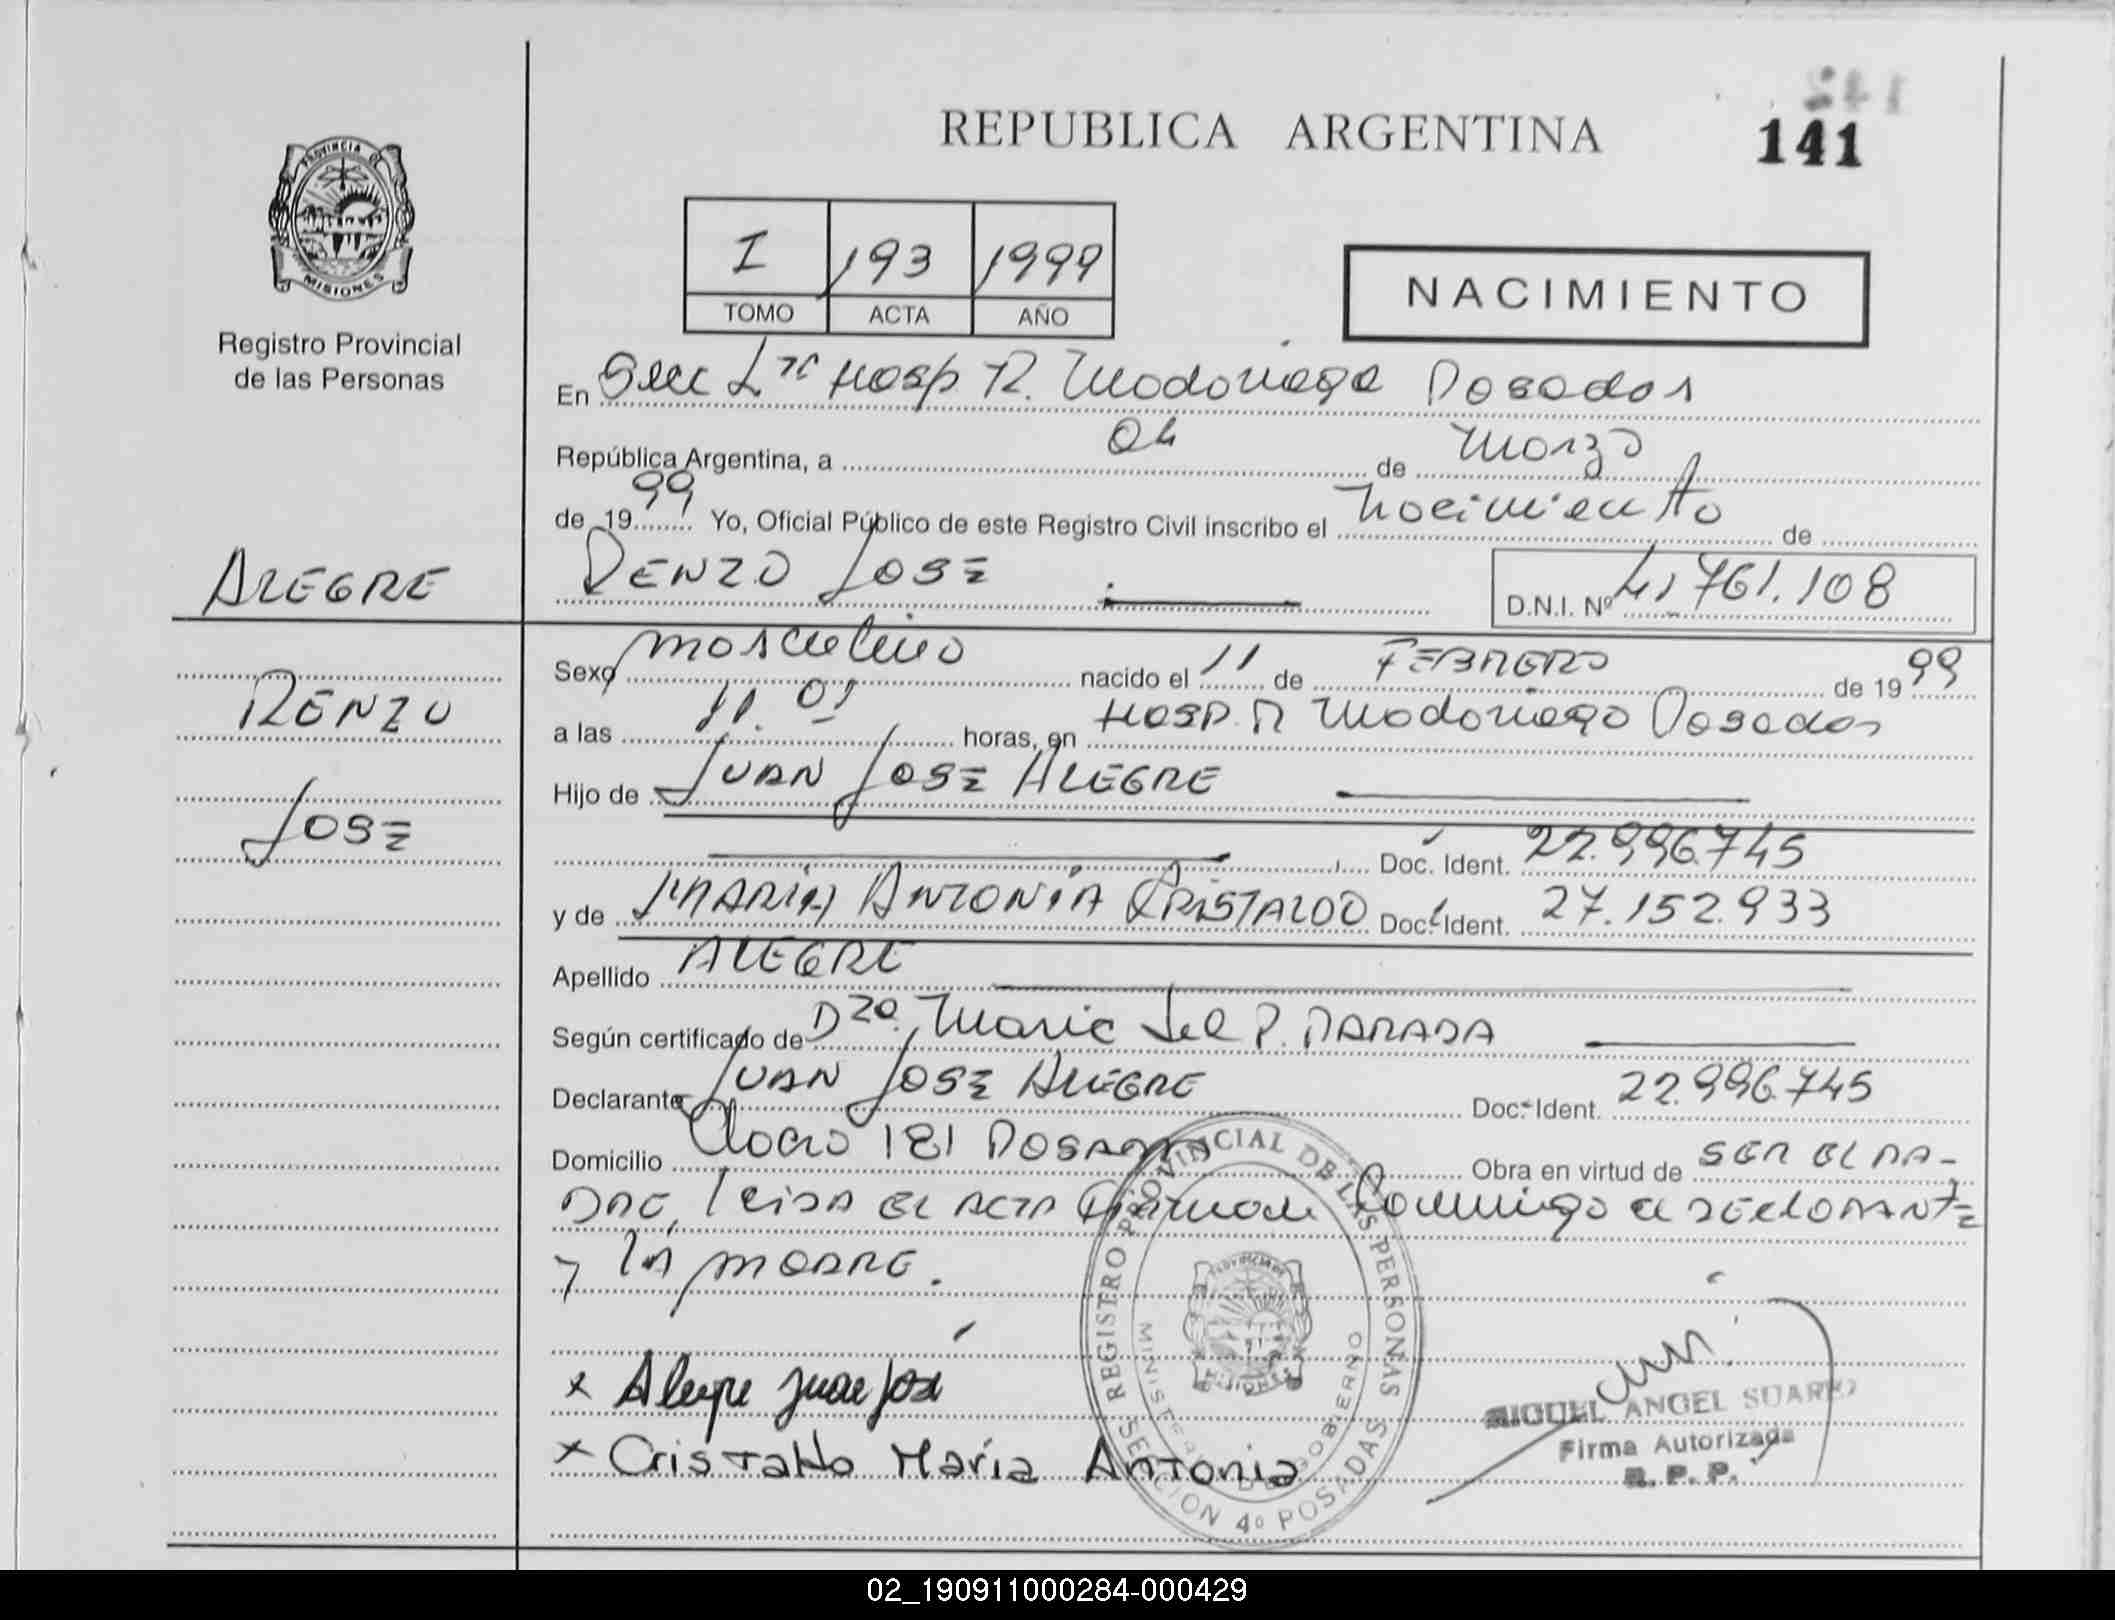 142
REPUBLICA ARGENTINA
141
PROVINCIA DE
MISIONES
Registro Provincial
de las Personas
I 193 1999
TOMO ACTA AÑO
NACIMIENTO
En Hosp. R. Madariaga Posadas
República Argentina, a 04 de Marzo
de 1999 Yo, Oficial Público de este Registro Civil inscribo el nacimiento de
ALEGRE
RENZO JOSE
D.N.I. Nº 41.761.108
Sexo masculino nacido el 11 de FEBRERO de 1999
RENZO
a las 11.01 horas, en HOSP. R Madariaga Posadas
Hijo de JUAN JOSE ALEGRE
JOSE
Doc. Ident. 22.996.745
y de MARIA ANTONIA CRISTALDO Doc. Ident. 27.152.933
Apellido ALEGRE
Según certificado de Dra. Maria del P. PARADA
Declarante JUAN JOSE ALEGRE Doc. Ident. 22.996.745
Domicilio 181 POSADAS Obra en virtud de SER EL PA-
DRE, leida EL ACTA Firman Conmigo el DEClARANTE
y la MADRE.
REGISTRO PROVINCIAL DE LAS PERSONAS
MINISTERIO DE GOBIERNO
SECCION 4º POSADAS
x Alegre Juan José
x Cristaldo María Antonia
MIGUEL ANGEL SUAREZ
Firma Autorizada
R. P. P.
02_190911000284-000429